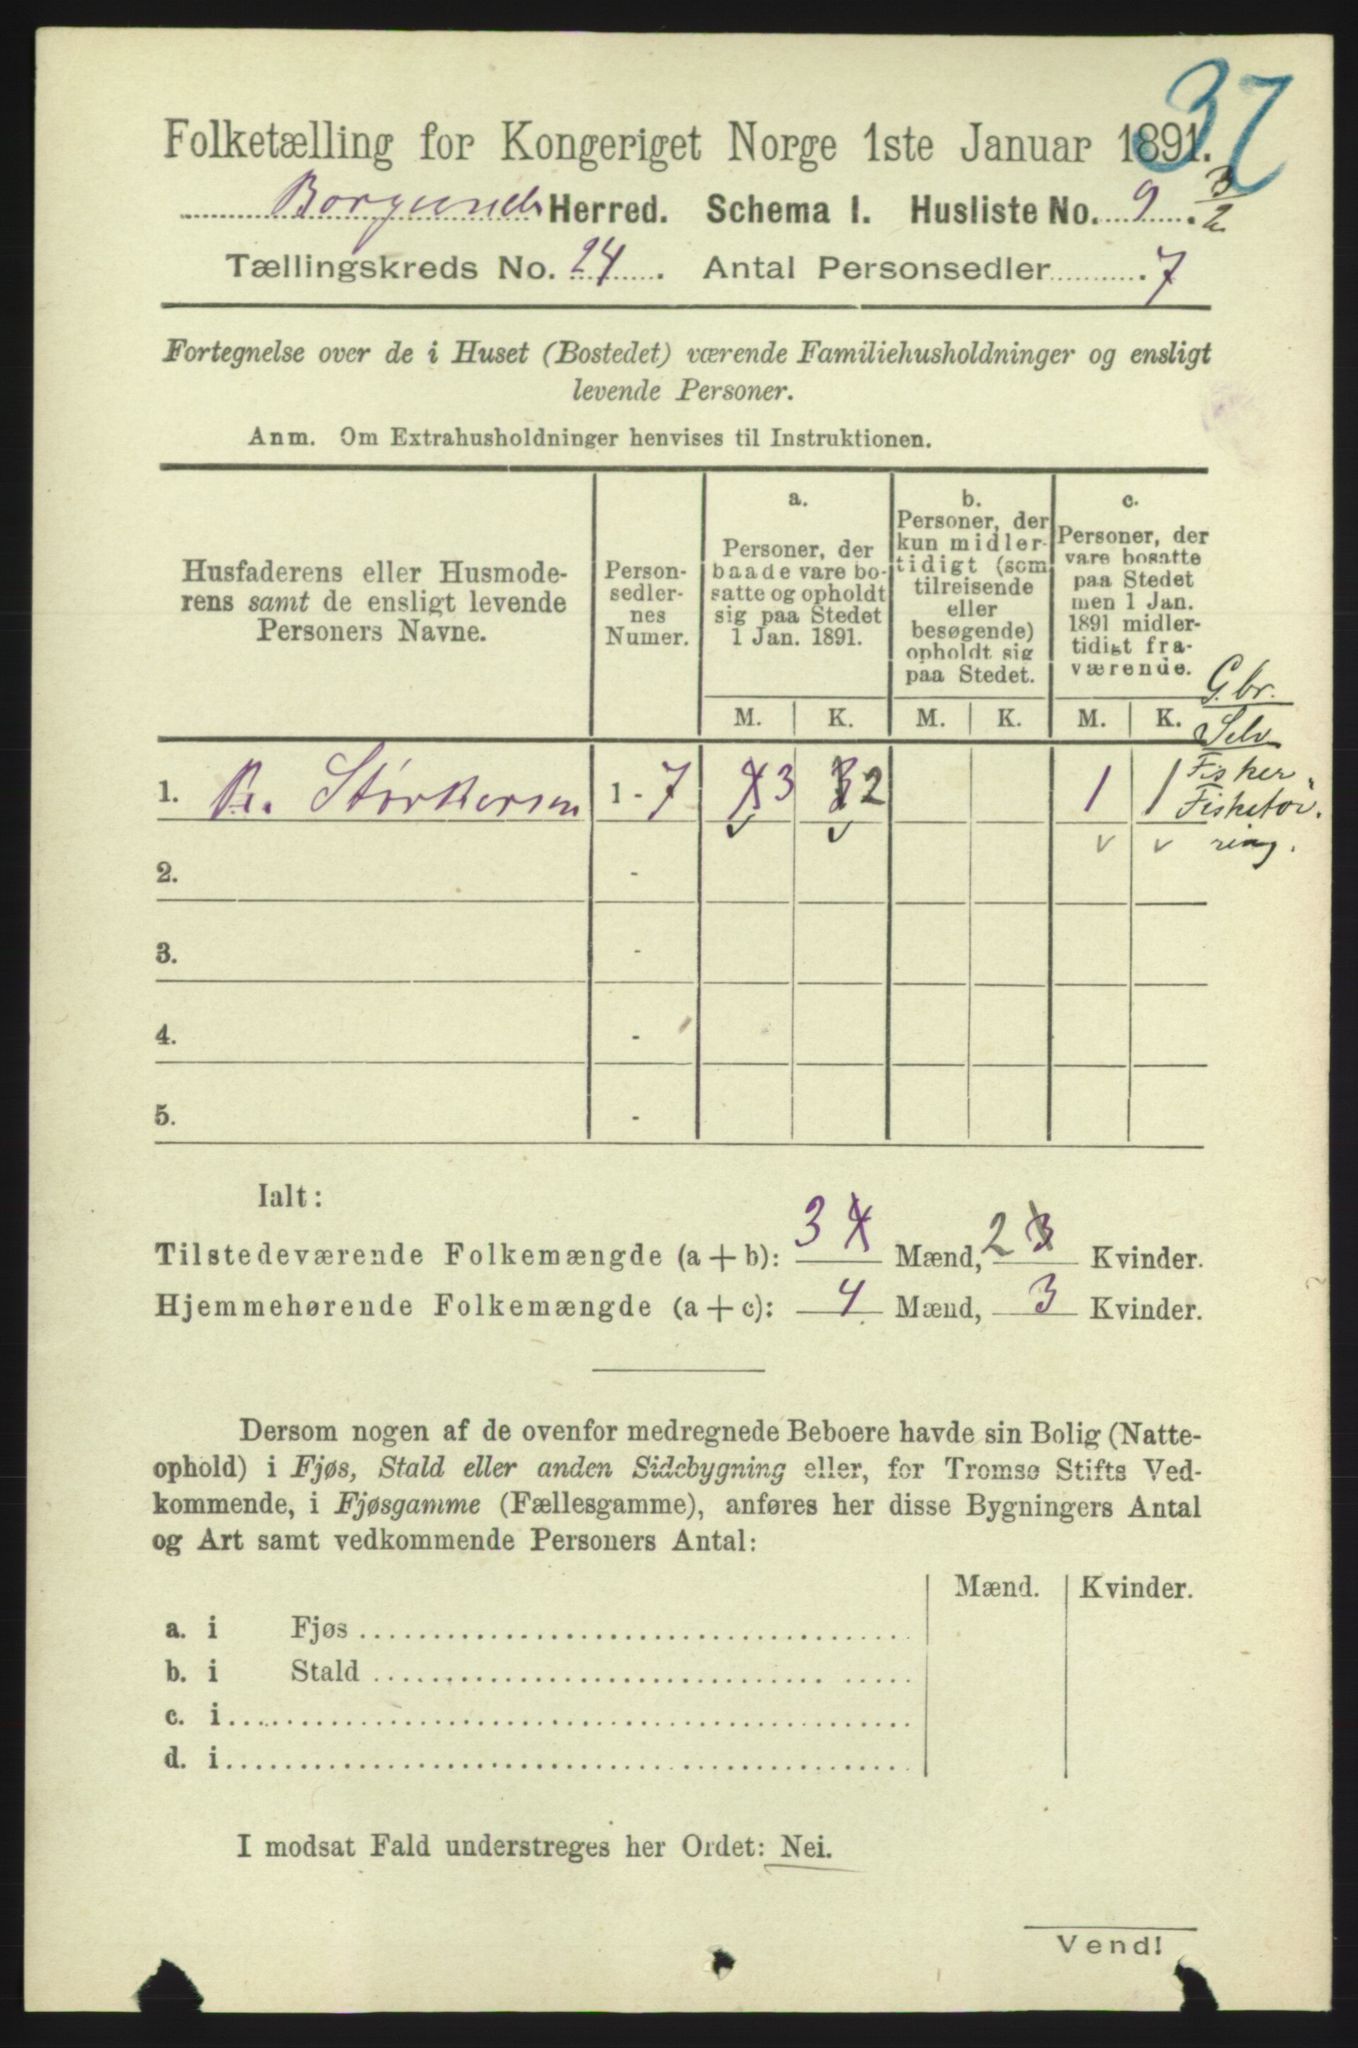 37
Folketælling for Kongeriget Norge 1ste Januar 1891.
Borgunds Herred. Schema I. Husliste No. 9. 3/2
Tællingskreds No. 24. Antal Personsedler 7
Fortegnelse over de i Huset (Bostedet) værende Familiehusholdninger og ensligt
levende Personer.
Anm. Om Extrahusholdninger henvises til Instruktionen.
Husfaderens eller Husmode-
rens samt de ensligt levende
Personers Navne.
Person-
sedler-
nes
Numer.
a.
Personer, der
baade vare bo-
satte og opholdt
sig paa Stedet
1 Jan. 1891.
b.
Personer, der
kun midler-
tidigt (som
tilreisende
eller
besøgende)
opholdt sig
paa Stedet.
c.
Personer, der
vare bosatte
paa Stedet
men 1 Jan.
1891 midler-
tidigt fra-
værende.
M. K. M. K. M. K.
G.br.
Selv
Fisker
Fisketøi.
ring.
1. Størkersen 1 - 7 4 3 3 2 1 1
v v v v
2. -
3. -
4. -
5. -
Ialt:
Tilstedeværende Folkemængde (a + b): 3 4 Mænd, 2 3 Kvinder.
Hjemmehørende Folkemængde (a + c): 4 Mænd, 3 Kvinder.
Dersom nogen af de ovenfor medregnede Beboere havde sin Bolig (Natte-
ophold) i Fjøs, Stald eller anden Sidebygning eller, for Tromsø Stifts Ved-
kommende, i Fjøsgamme (Fællesgamme), anføres her disse Bygningers Antal
og Art samt vedkommende Personers Antal:
Mænd. Kvinder.
a. i Fjøs
b. i Stald
c. i
d. i
I modsat Fald understreges her Ordet: Nei.
Vend!